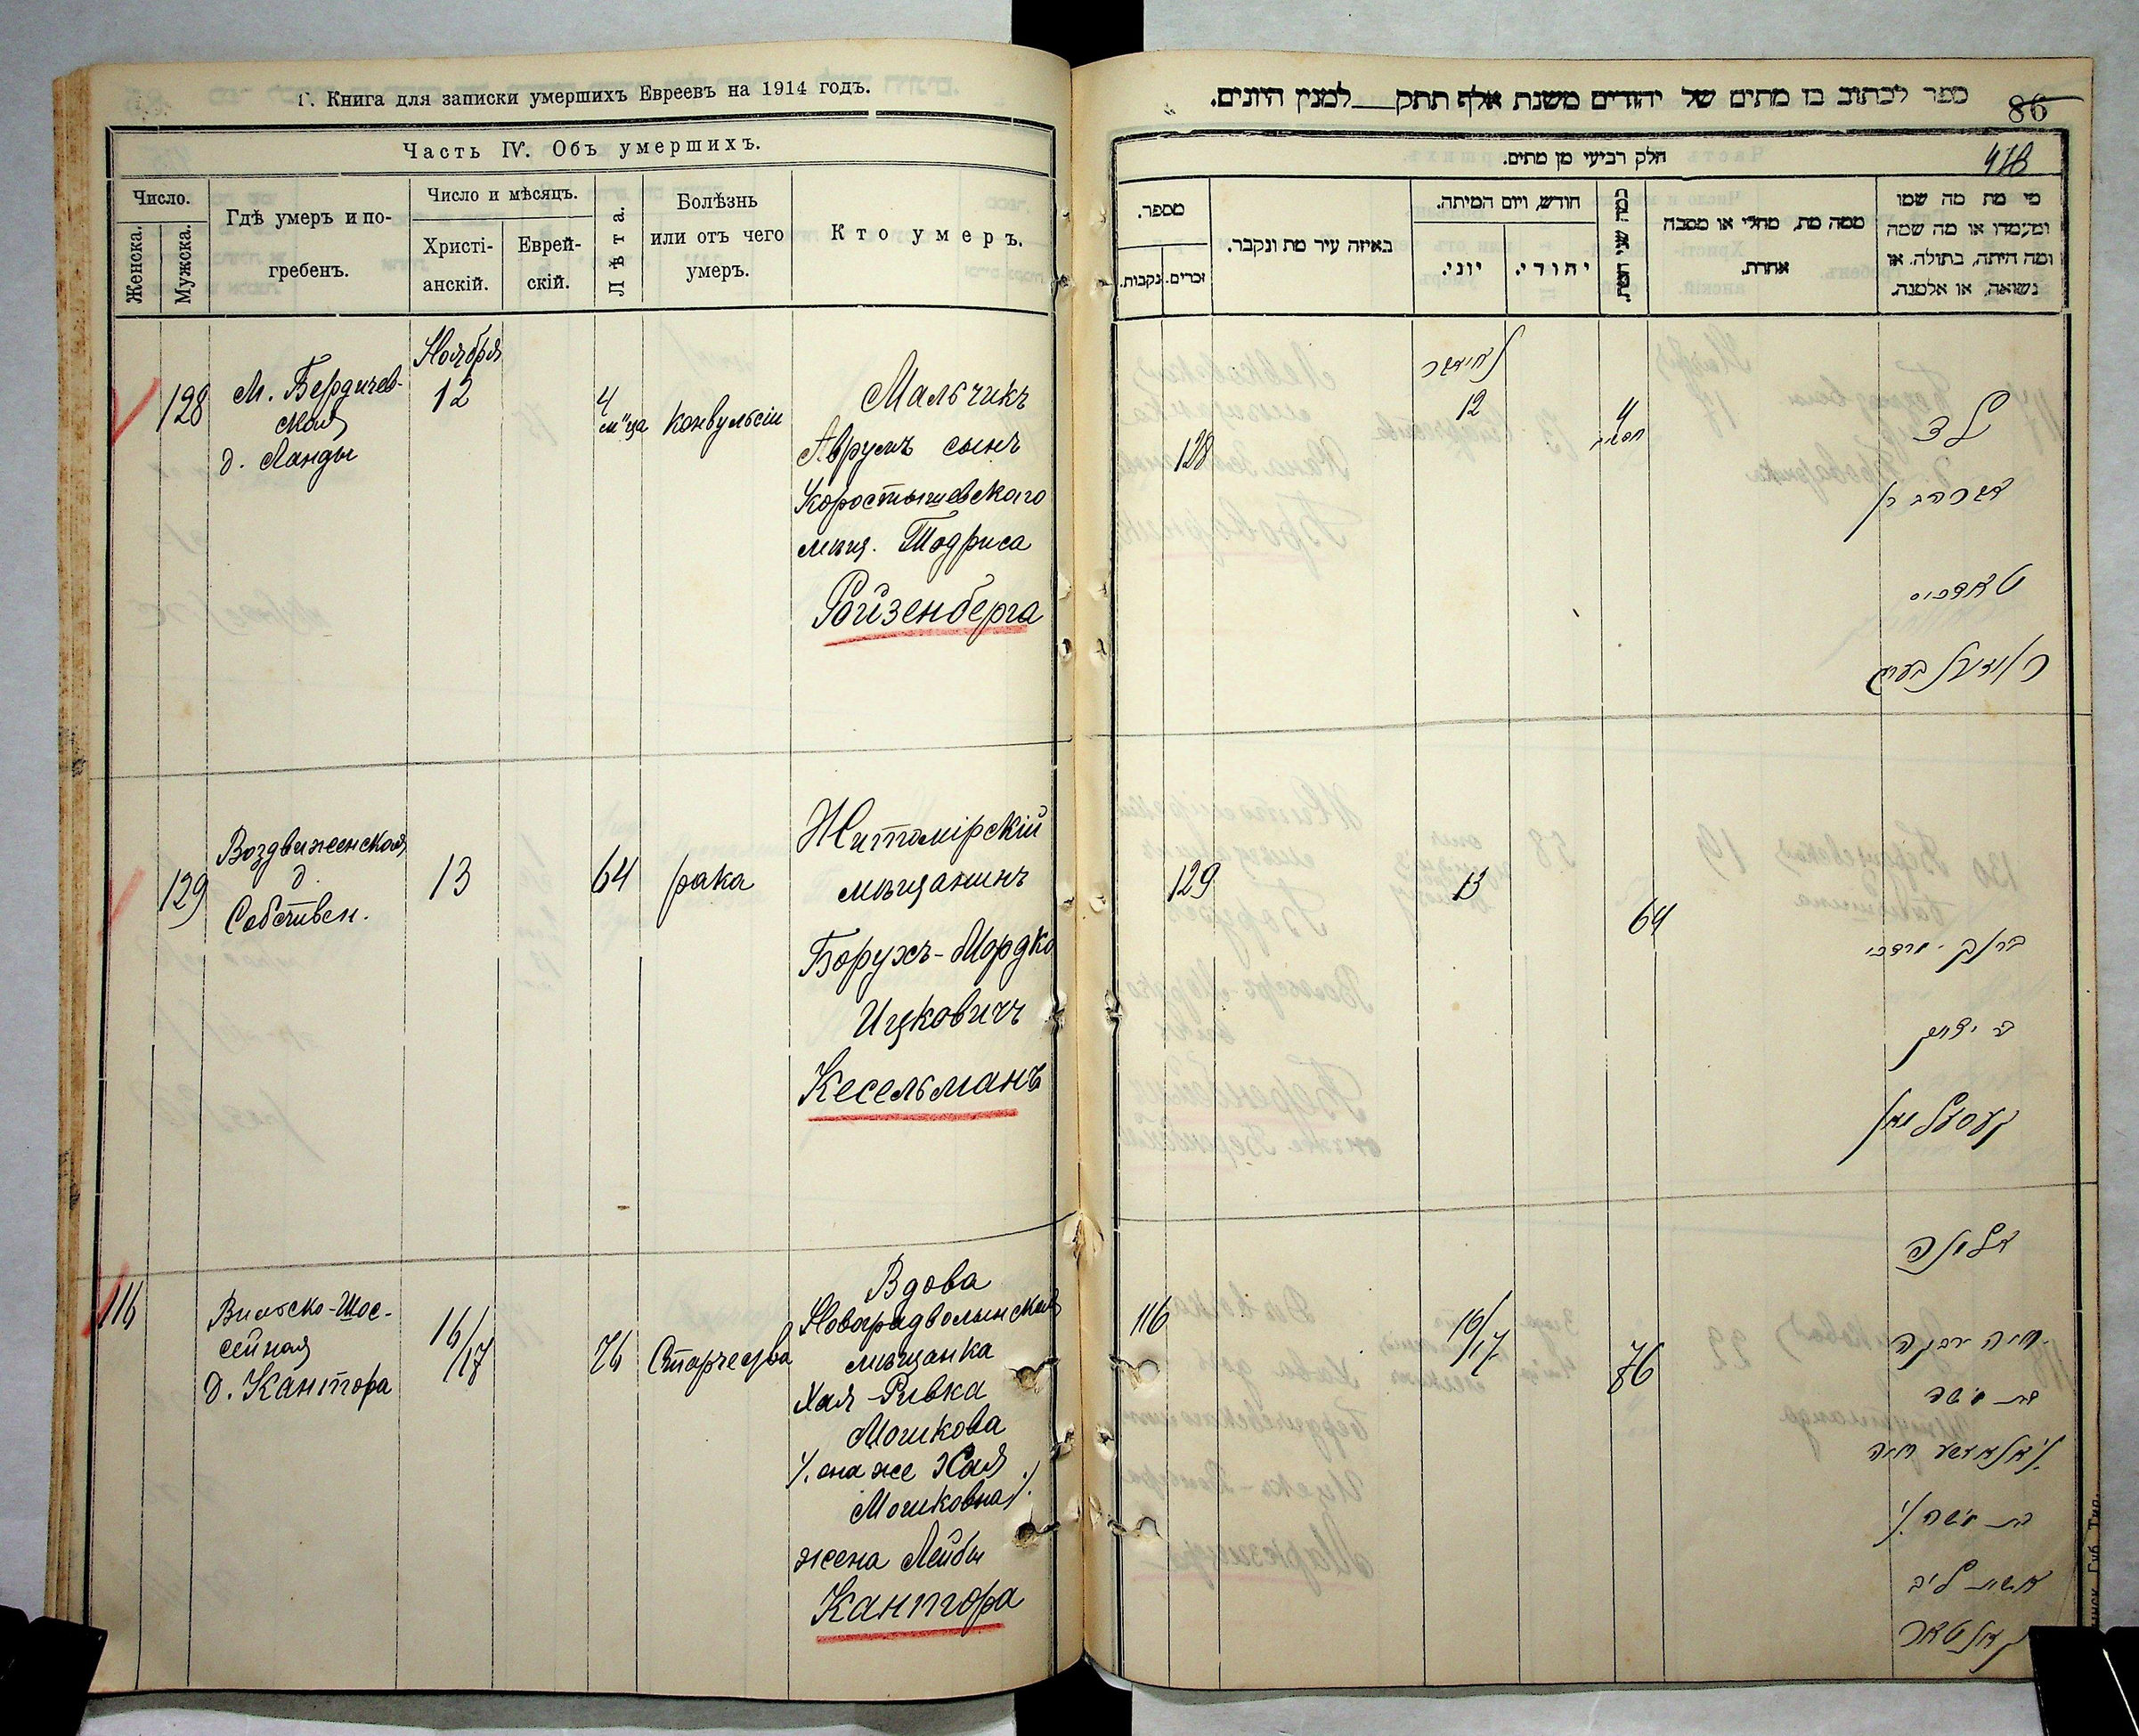 Г. Книга для записки умершихъ Евреевъ на 1914 годъ.
Часть IV. Объ умершихъ.
Число.
Женска.
Мужска.
Гдѣ умеръ и по-
гребенъ.
Число и мѣсяцъ.
Христі-
анскій.
Еврей-
скій.
Лѣта.
Болѣзнь
или отъ чего
умеръ.
Кто умеръ.
128
М. Бердичев-
ская
д. Ланды
Ноября
12
4
м-ца
конвульсіи
Мальчикъ
Аврумъ сынъ
Коростышевскаго
мѣщ. Тодриса
Ройзенберга
129
Воздвиженская
д.
Собствен.
13
64
рака
Житомірскій
мѣщанинъ
Борухъ-Мордко
Ицковичъ
Кесельманъ
116
Вильско-Шос-
сейная
д. Кантора
16/17
76
Старчества
Вдова
Новоградволынская
мѣщанка
Хая-Ривка
Мошкова
/. она же Хая
Мошковна /.
жена Лейбы
Кантора
ספר לכתוב בו מתים של יהודים משנת אלף תתק למנין היונים.
86
חלק רביעי מן מתים.
מספר.
נקבות.
זכרים.
באיזה עיר מת ונקבר.
חודש, ויום המיתה.
יוני.
יהודי.
כמה שני המת.
ממה מת, מחלי או מסבה
אחרת.
מי מת מה שמו
ומעמדו או מה שמה
ומה היתה, בתולה. או
נשואה, או אלמנה.
128
נאיאבר
12
4
ילד
אברהם בן
טאדריס
רויזענבערג
129
13
64
ברוך מרדכי
בר יצחק
קעסעלמאן
116
16/17
76
אלמנה
חיה רבקה
בת משה
בת משה ./
אשת ליב
קאנטאר